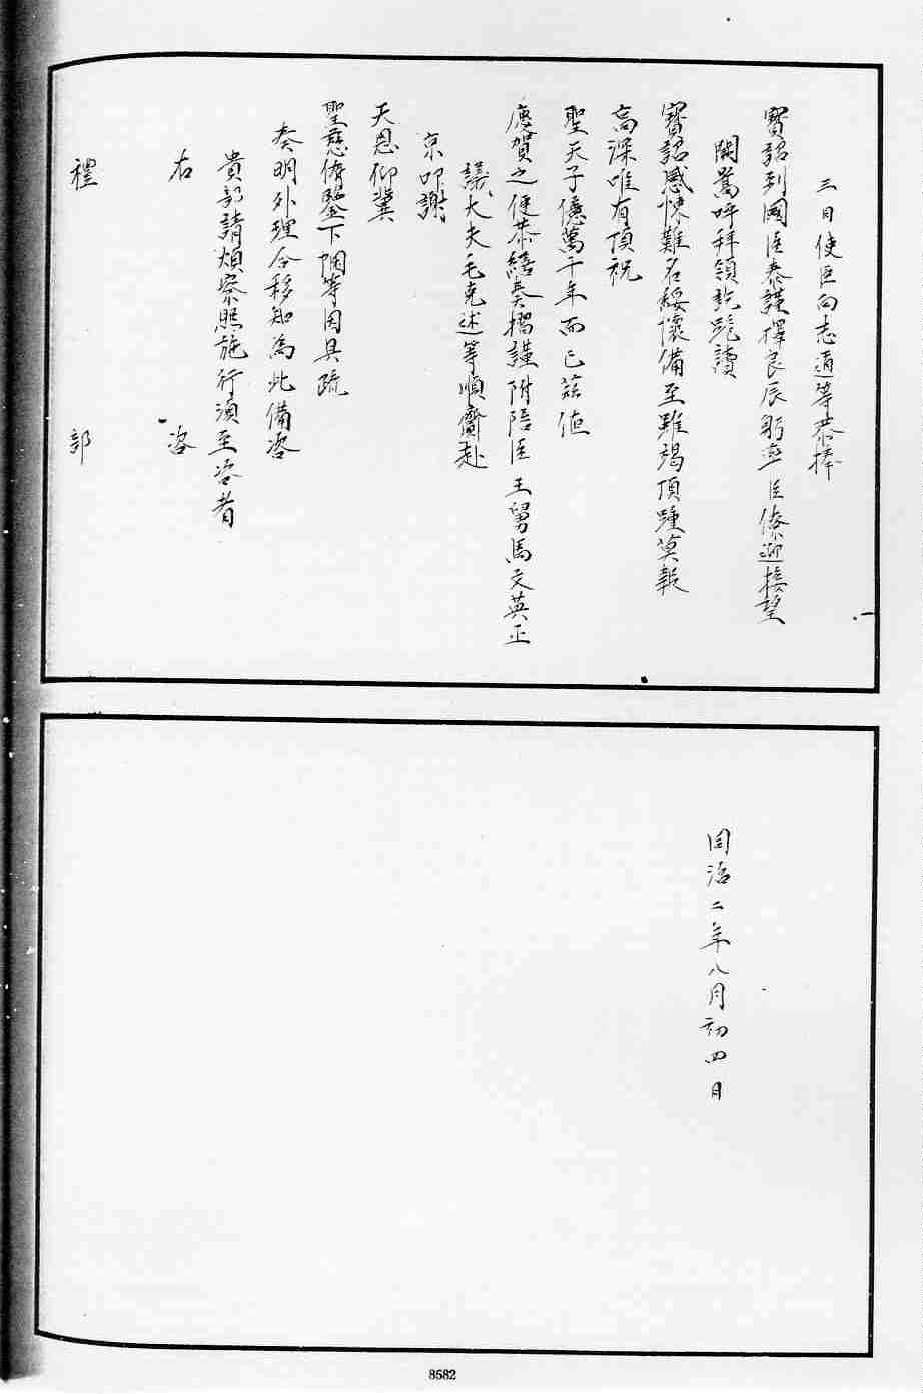 三日使臣向志道等恭捧
寶詔到國臣泰謹擇良辰躬率臣僚迎接望
闕嵩呼拜領訖跪讀
寶詔感悚難名綏懷備至雖竭頂踵莫報
高深唯有頂祝
聖天子億萬千年而已茲值
慶賀之便恭繕奏摺謹附陪臣王舅馬文英正
議大夫毛克述等順齎赴
京叩謝
天恩仰冀
聖慈俯鑒下悃等因具疏
奏明外理合移知為此備咨
貴部請煩察照施行須至咨者
右咨
禮部
同治二年八月初四日
8582